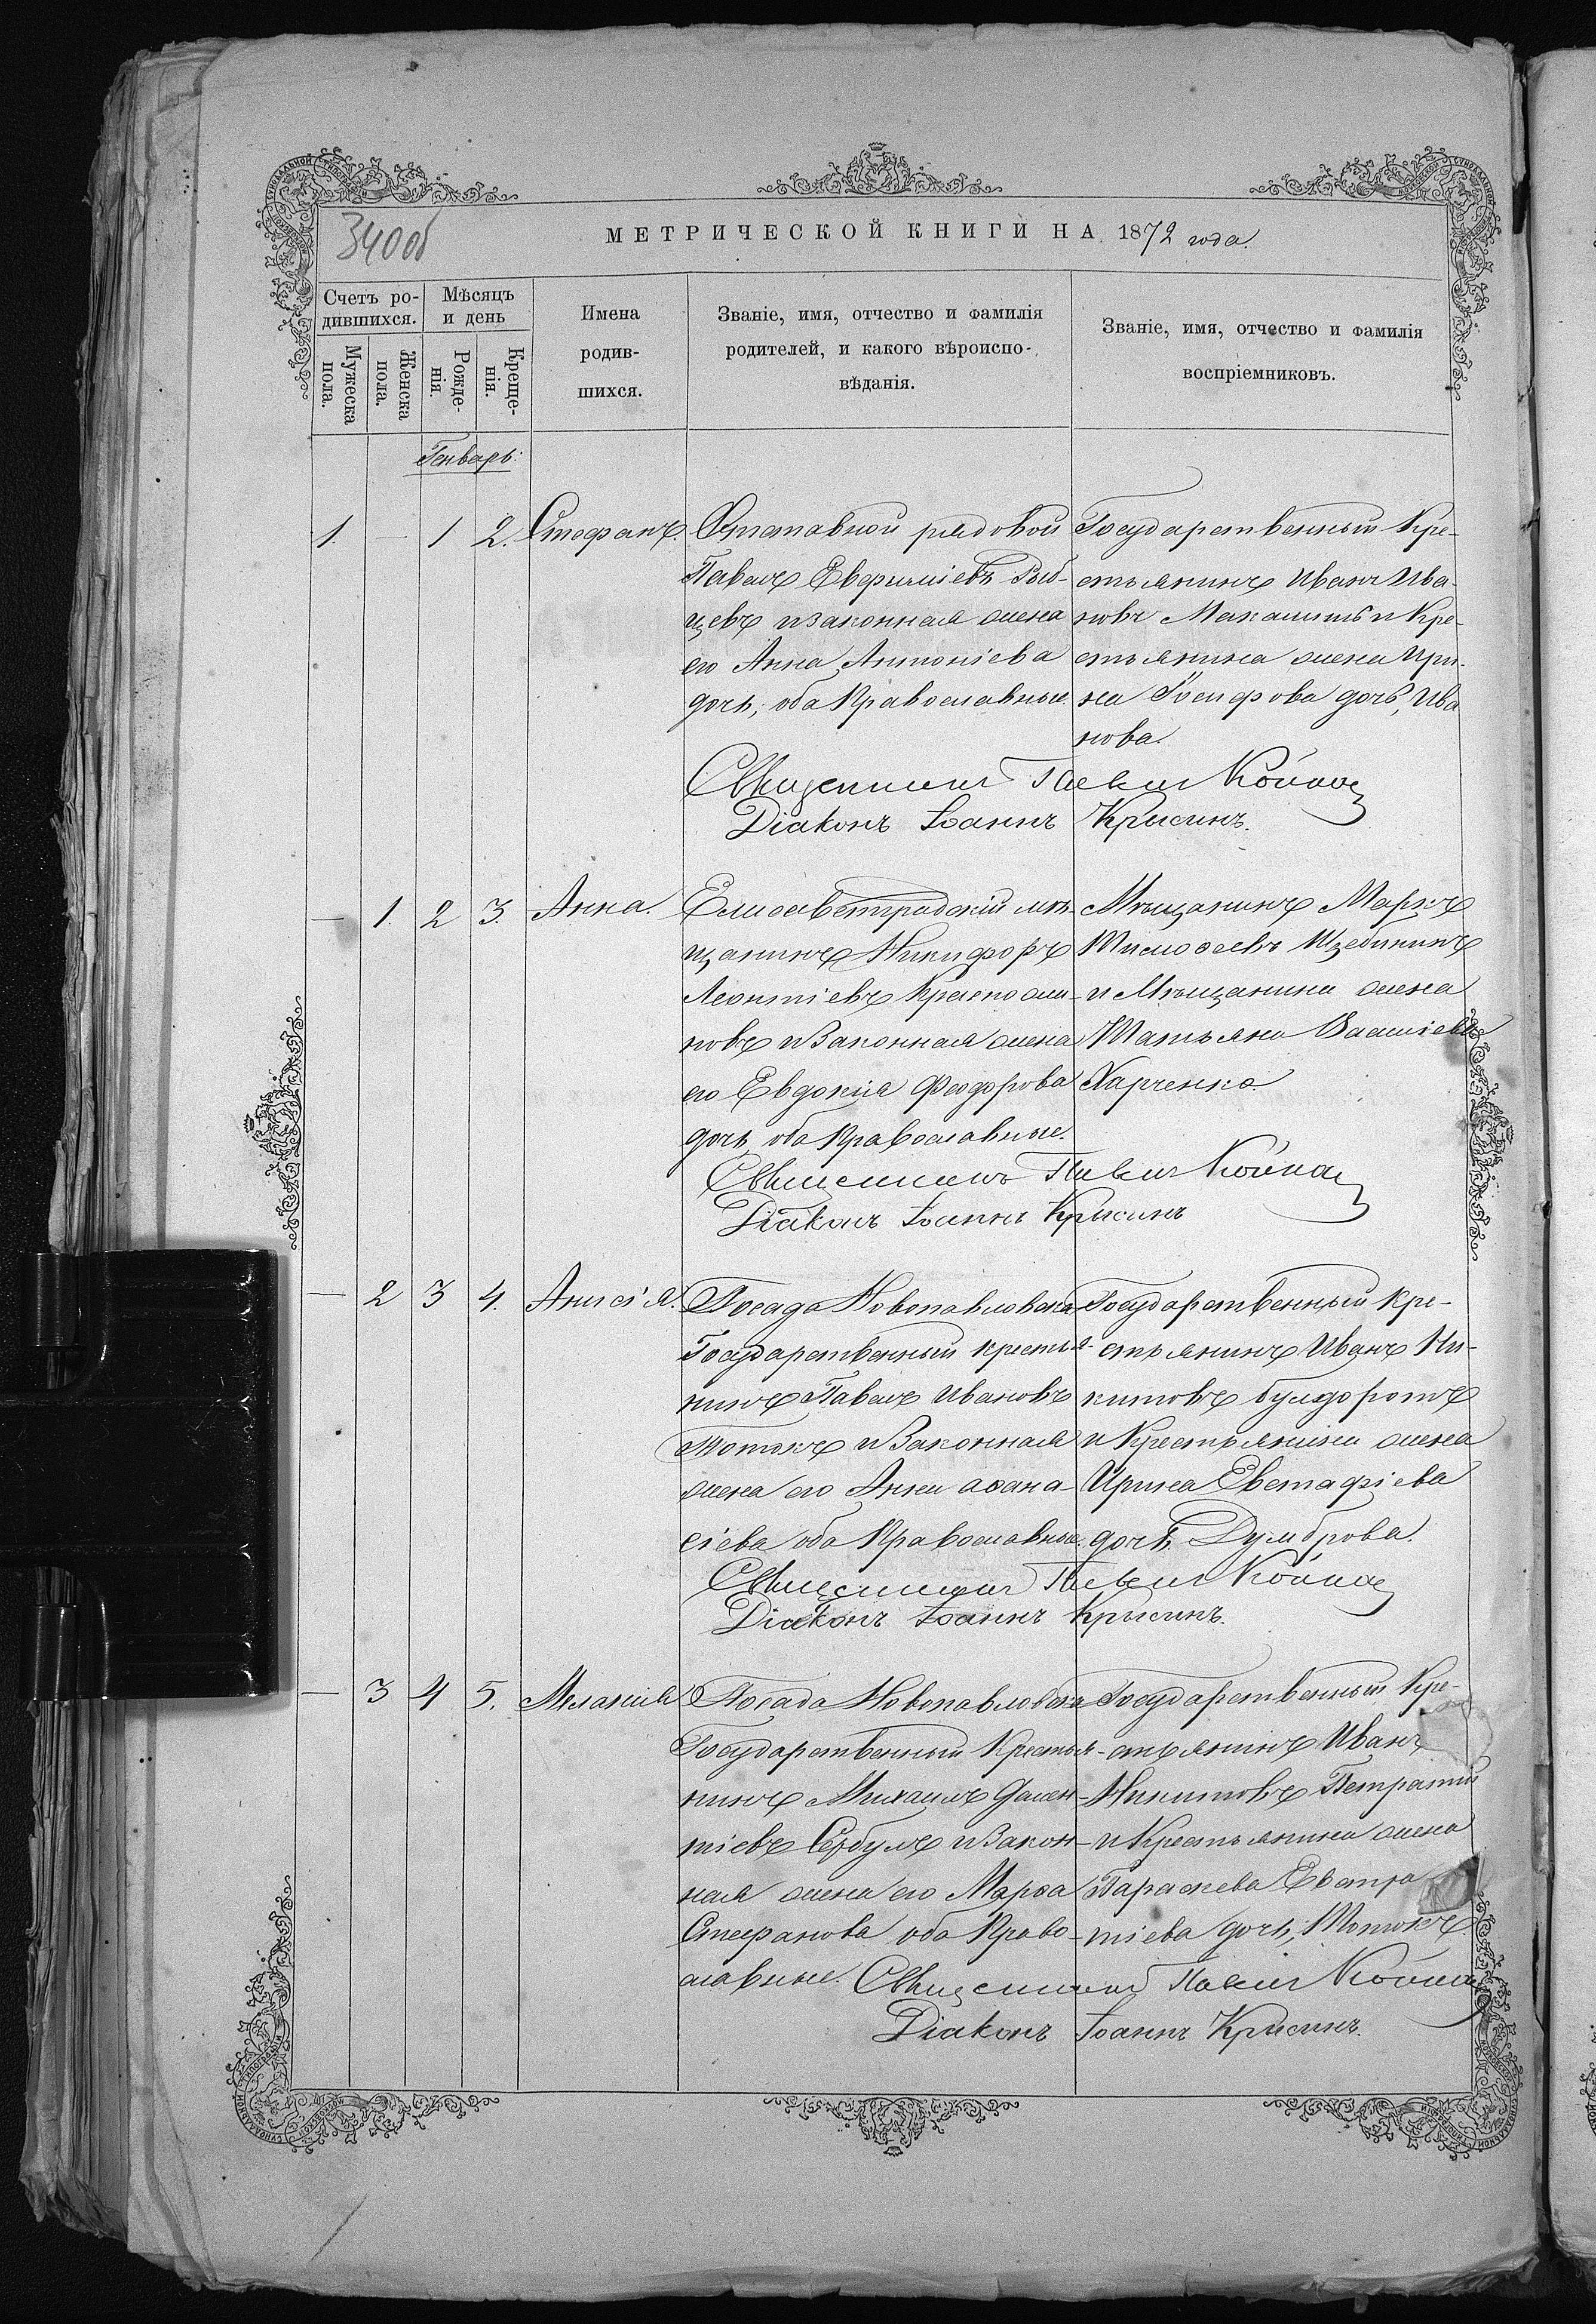 340об
МЕТРИЧЕСКОЙ КНИГИ НА 1872 года.
Счетъ ро-
дившихся.
Мужеска
пола.
Женска
пола.
Мѣсяцъ
и день
Рожде-
нія.
Креще-
нія.
Имена
родив-
шихся.
Званіе, имя, отчество и фамилія
родителей, и какого вѣроиспо-
вѣданія.
Званіе, имя, отчество и фамилія
воспріемниковъ.
Генварь:
1. — 1 2. Стефанъ.
Отставной рядовой
Павелъ Евфиміевъ
и законная жена
его Анна Антоніева
дочь, оба Православные.
Государственный Кре-
стьянинъ Иванъ Ива-
новъ и Кре-
стьянина жена Ири-
на Іосифова дочь, Ива
нова.
Священникъ Павелъ
Діаконъ Іоаннъ Крысинъ.
— 1. 2 3. Анна.
Елисаветградскій мѣ-
щанинъ Никифоръ
Леонтіевъ
новъ и Законная жена
его Евдокія Феодорова
дочь оба Православные.
Мѣщанинъ Маркъ
Тимоѳеевъ
и Мѣщанина жена
Татьяна Василіева
Харченко.
Священникъ Павелъ
Діаконъ Іоаннъ Крысинъ
— 2 3 4. Анисія.
Посада Новопавловска
Государственный крестья-
нинъ Павелъ Ивановъ
Тотокъ и Законная
жена его Анна Аѳана-
сіева оба Православные.
Государственный кре-
стьянинъ Иванъ Ни-
китовъ
и Крестьянина жена
Ирина Евстафіева
дочь Думброва.
Священникъ Павелъ
Діаконъ Іоаннъ Крысинъ.
— 3 4 5. Меланія
Посада Новопавловска
Государственный Крестья-
нинъ Михаилъ
тіевъ Сербулъ и Закон-
ная жена его Марѳа
Стефанова оба Право-
славные.
Государственный Кре-
стьянинъ Иванъ
Никитовъ
и Крестьянина жена
Параскева Евстра
тіева дочь, Тотокъ.
Священникъ Павелъ
Діаконъ Іоаннъ Крысинъ.